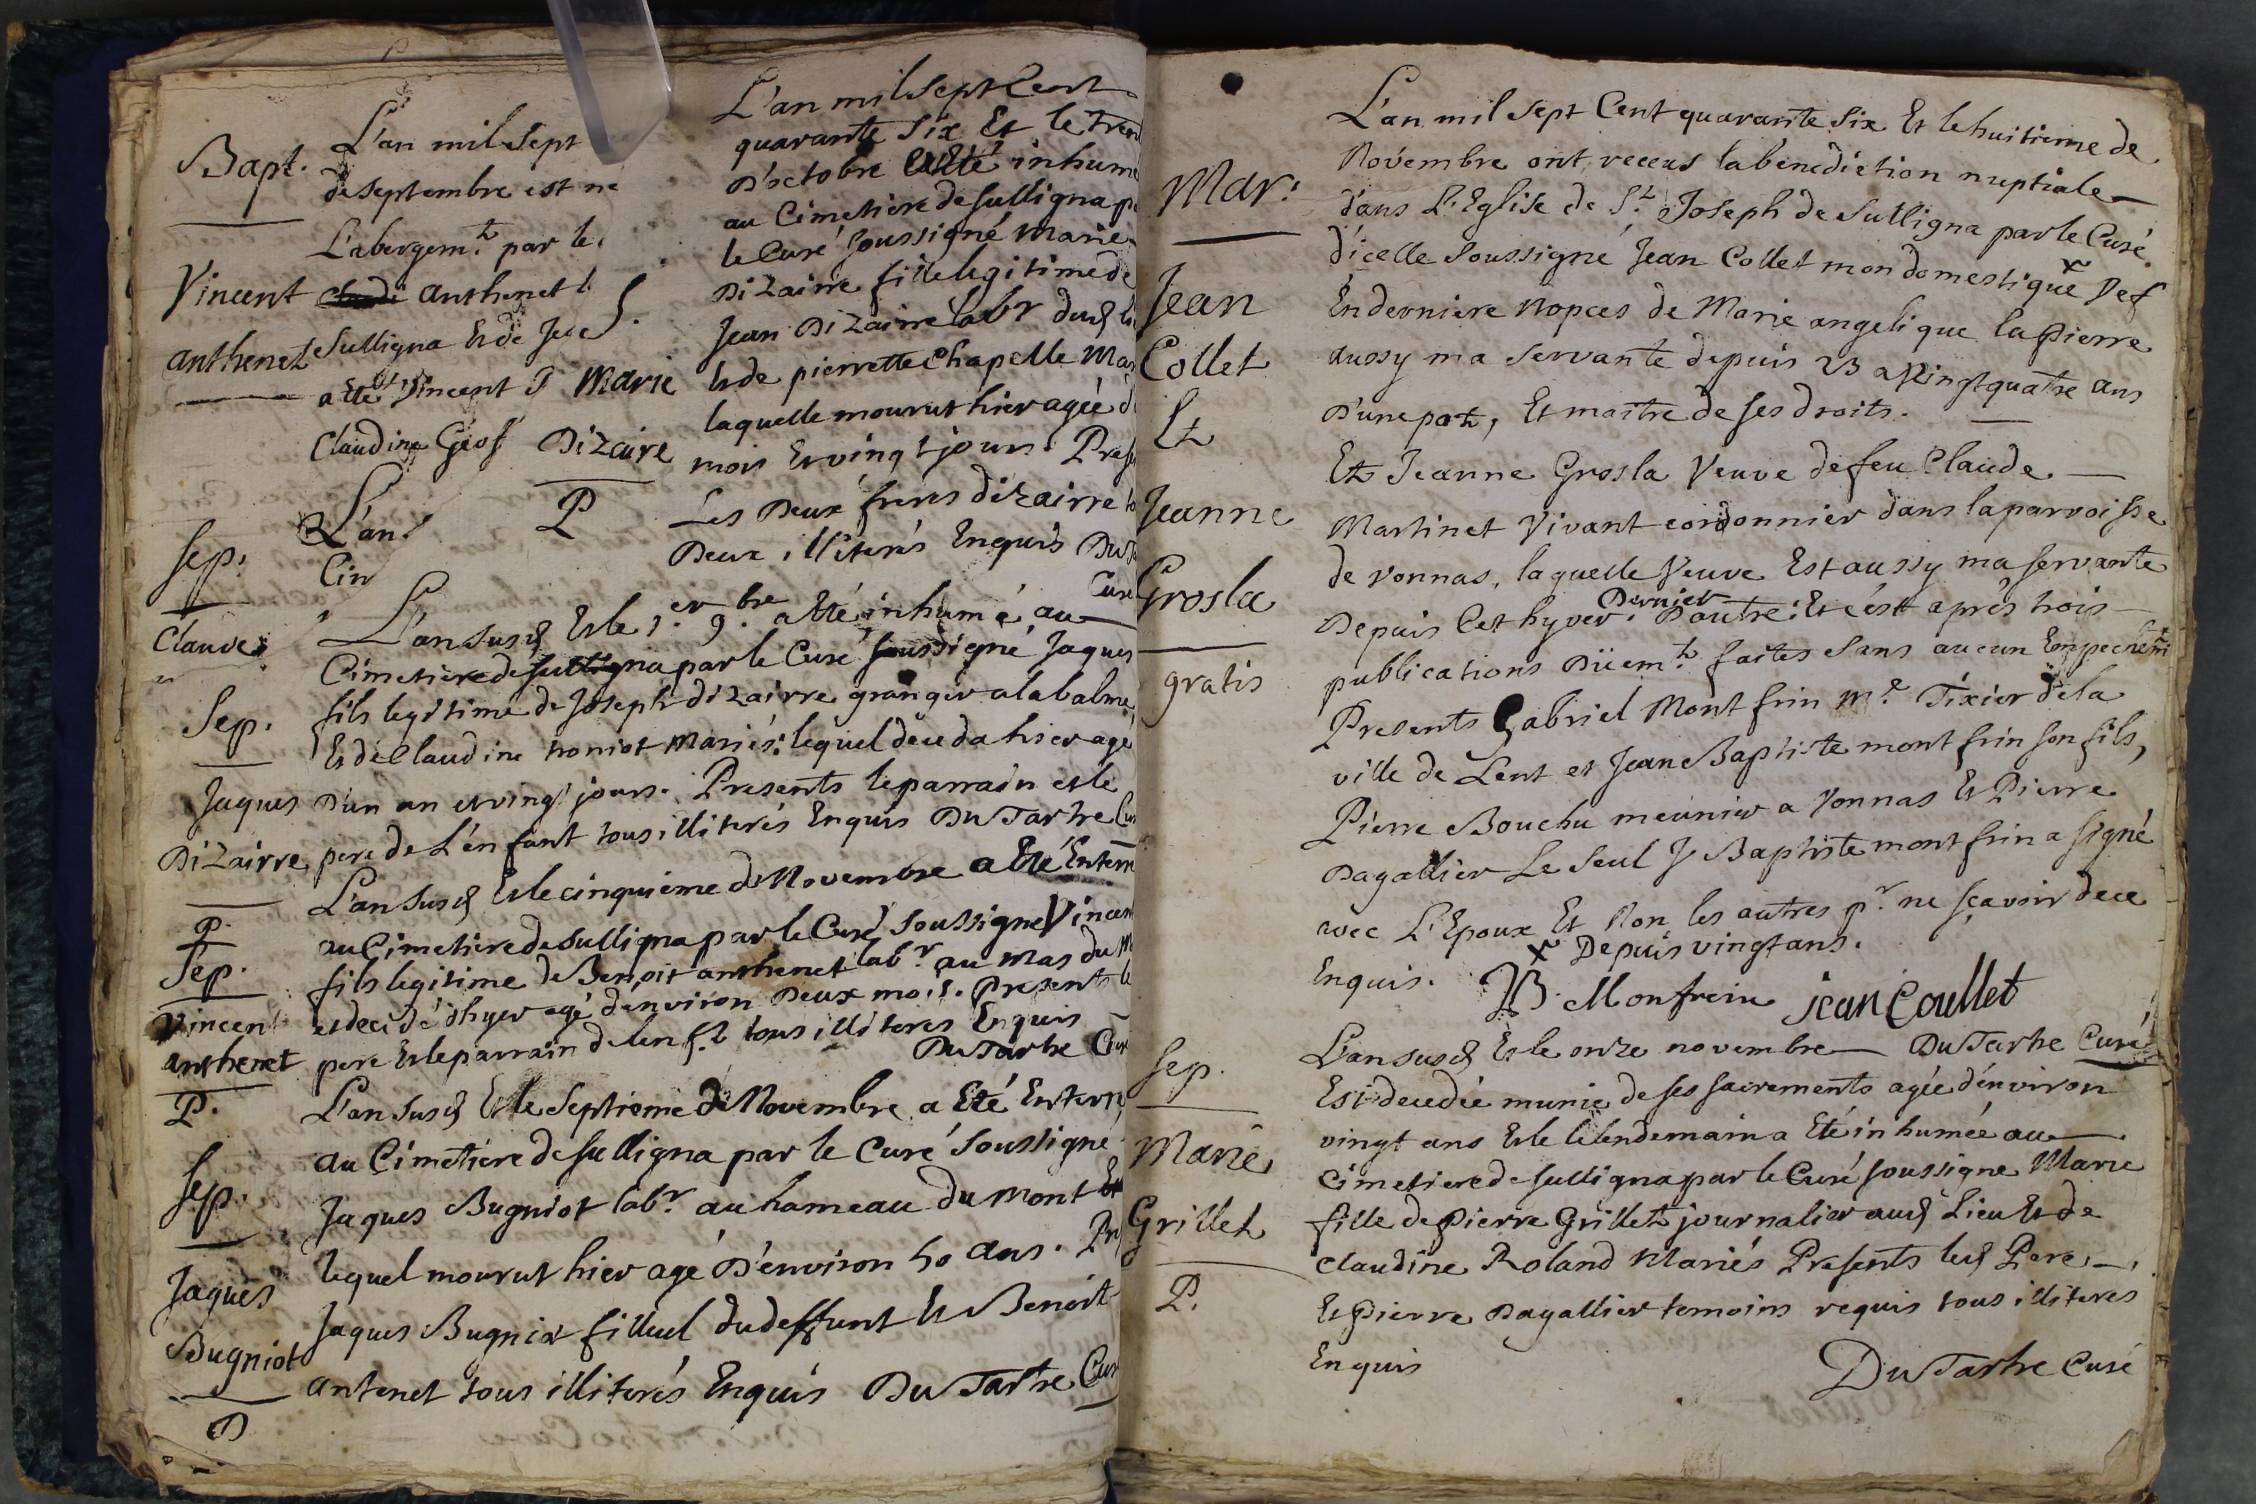 Bapt.
L'an mil sept
de septembre est né
L'abergem.t par le
Vincent
anthenet
Sulligna Et de
a été Vincent
Claudine
Sep.
L'an
Cin
Claude
L'an mil sept Cent
quarante six Et le
D'octobre a Eté inhum
au Cimetiere de sulligna p
le Curé soussigné Marie
Dizairre fille legitime de
Jean Dizairre lab.r
Marie
Dizaire
P
Et de pierrette Chapelle Mar
laquelle mourut hier agée d
mois Et vingt jours. Pres
Les Deux freres dizairre to
Deux illiterés Enquis DuTa
Curé
Sep.
Jaques
Dizairre
P.
L'an susd Et le 1.er 9.bre a Eté inhumé au
Cimetiere de sulligna par le Curé soussigné Jaques
fils legitime de Joseph dizairre granger a la balme
Et de Claudine moniot Mariés: lequel déceda hier agé
D'un an et vingt jours. Presents le parrain et le
pere de L'enfant tous illiterés Enquis DuTartre Cu
Sep.
Vincent
anthenet
P.
L'an susd Et le cinquieme de Novembre a Eté Enterr
au Cimetiere de sulligna par le Curé soussigné Vincen
fils legitime de Benoit anthenet lab.r au mas du M
et decédé d'hyer agé d'environ Deux mois. Presents le
pere Et le parrain de l'enf.t tous illiterés Enquis
DuTartre Cur
Sep.
Jaques
Bugniot
P
L'an susd Et le Septieme de Novembre a Eté Enterr
au Cimetiere de sulligna par le Curé soussigné
Jaques Bugniot lab.r au hameau du Mont
lequel mourut hier agé D'environ 50 ans. Pr
Jaques Bugniot filleul du deffunt Et Benoit
antenet tous illiterés Enquis DuTartre Cur
Mar.
Jean
Collet
Et
Jeanne
Grosla
gratis
L'an mil sept Cent quarante six Et le huitieme de
Novembre ont receus la benediction nuptiale
dans L'Eglise de S.t Joseph de Sulligna par le Curé
d'icelle soussigné Jean Collet mon domestique x Vef
En derniere nopces de Marie angelique lapierre
aussy ma servante depuis 23 a Vingt quatre ans
D'une part, Et maitre de ses droits.
Et Jeanne Grosla Veuve de feu Claude
Martinet Vivant cordonnier dans la parroisse
de vonnas, laquelle Veuve Est aussy ma servante
Depuis Cet hyver Dernier D'autre: Et c'est après trois
publications Düem.t faites sans aucun Empechem.t
Presents Gabriel Montfrin M.e Tixier de la
ville de Lent et Jean Baptiste montfrin son fils,
Pierre Bouchu meunier a vonnas Et Pierre
Dagallier Le seul J Baptiste montfrin a signé
avec L'Epoux Et Non les autres p.r ne sçavoir de ce
Enquis. x Depuis vingt ans.
JB. Monfrein jean Coullet
DuTartre Curé
Sep.
Marie
Grillet
P.
L'an susd Et le onze novembre
Est decedée munie de ses sacrements agée d'environ
vingt ans Et le lendemain a Eté inhumée au
Cimetiere de sulligna par le Curé soussigné Marie
fille de pierre Grillet journalier aud Lieu Et de
Claudine Roland Mariés Presents led Pere
Et Pierre Dagallier temoins requis tous illiteres
Enquis
DuTartre Curé